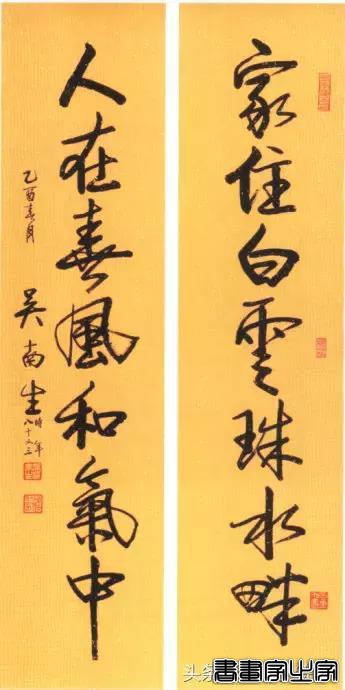 家住白雲珠水畔
人在春風和氣中
乙酉春月
吳南生
時年
八十又三
头条
書畫家必家